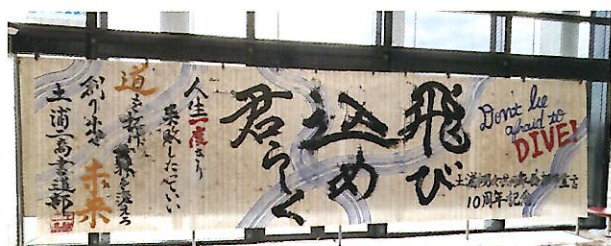 Don't be
afraid to
DIVE!
土浦男女共同参画都市宣言
10周年記念
飛び
込め
君らしく
人生一度きり
失敗したっていい
道を
創り出せ 未来
土浦二高書道部